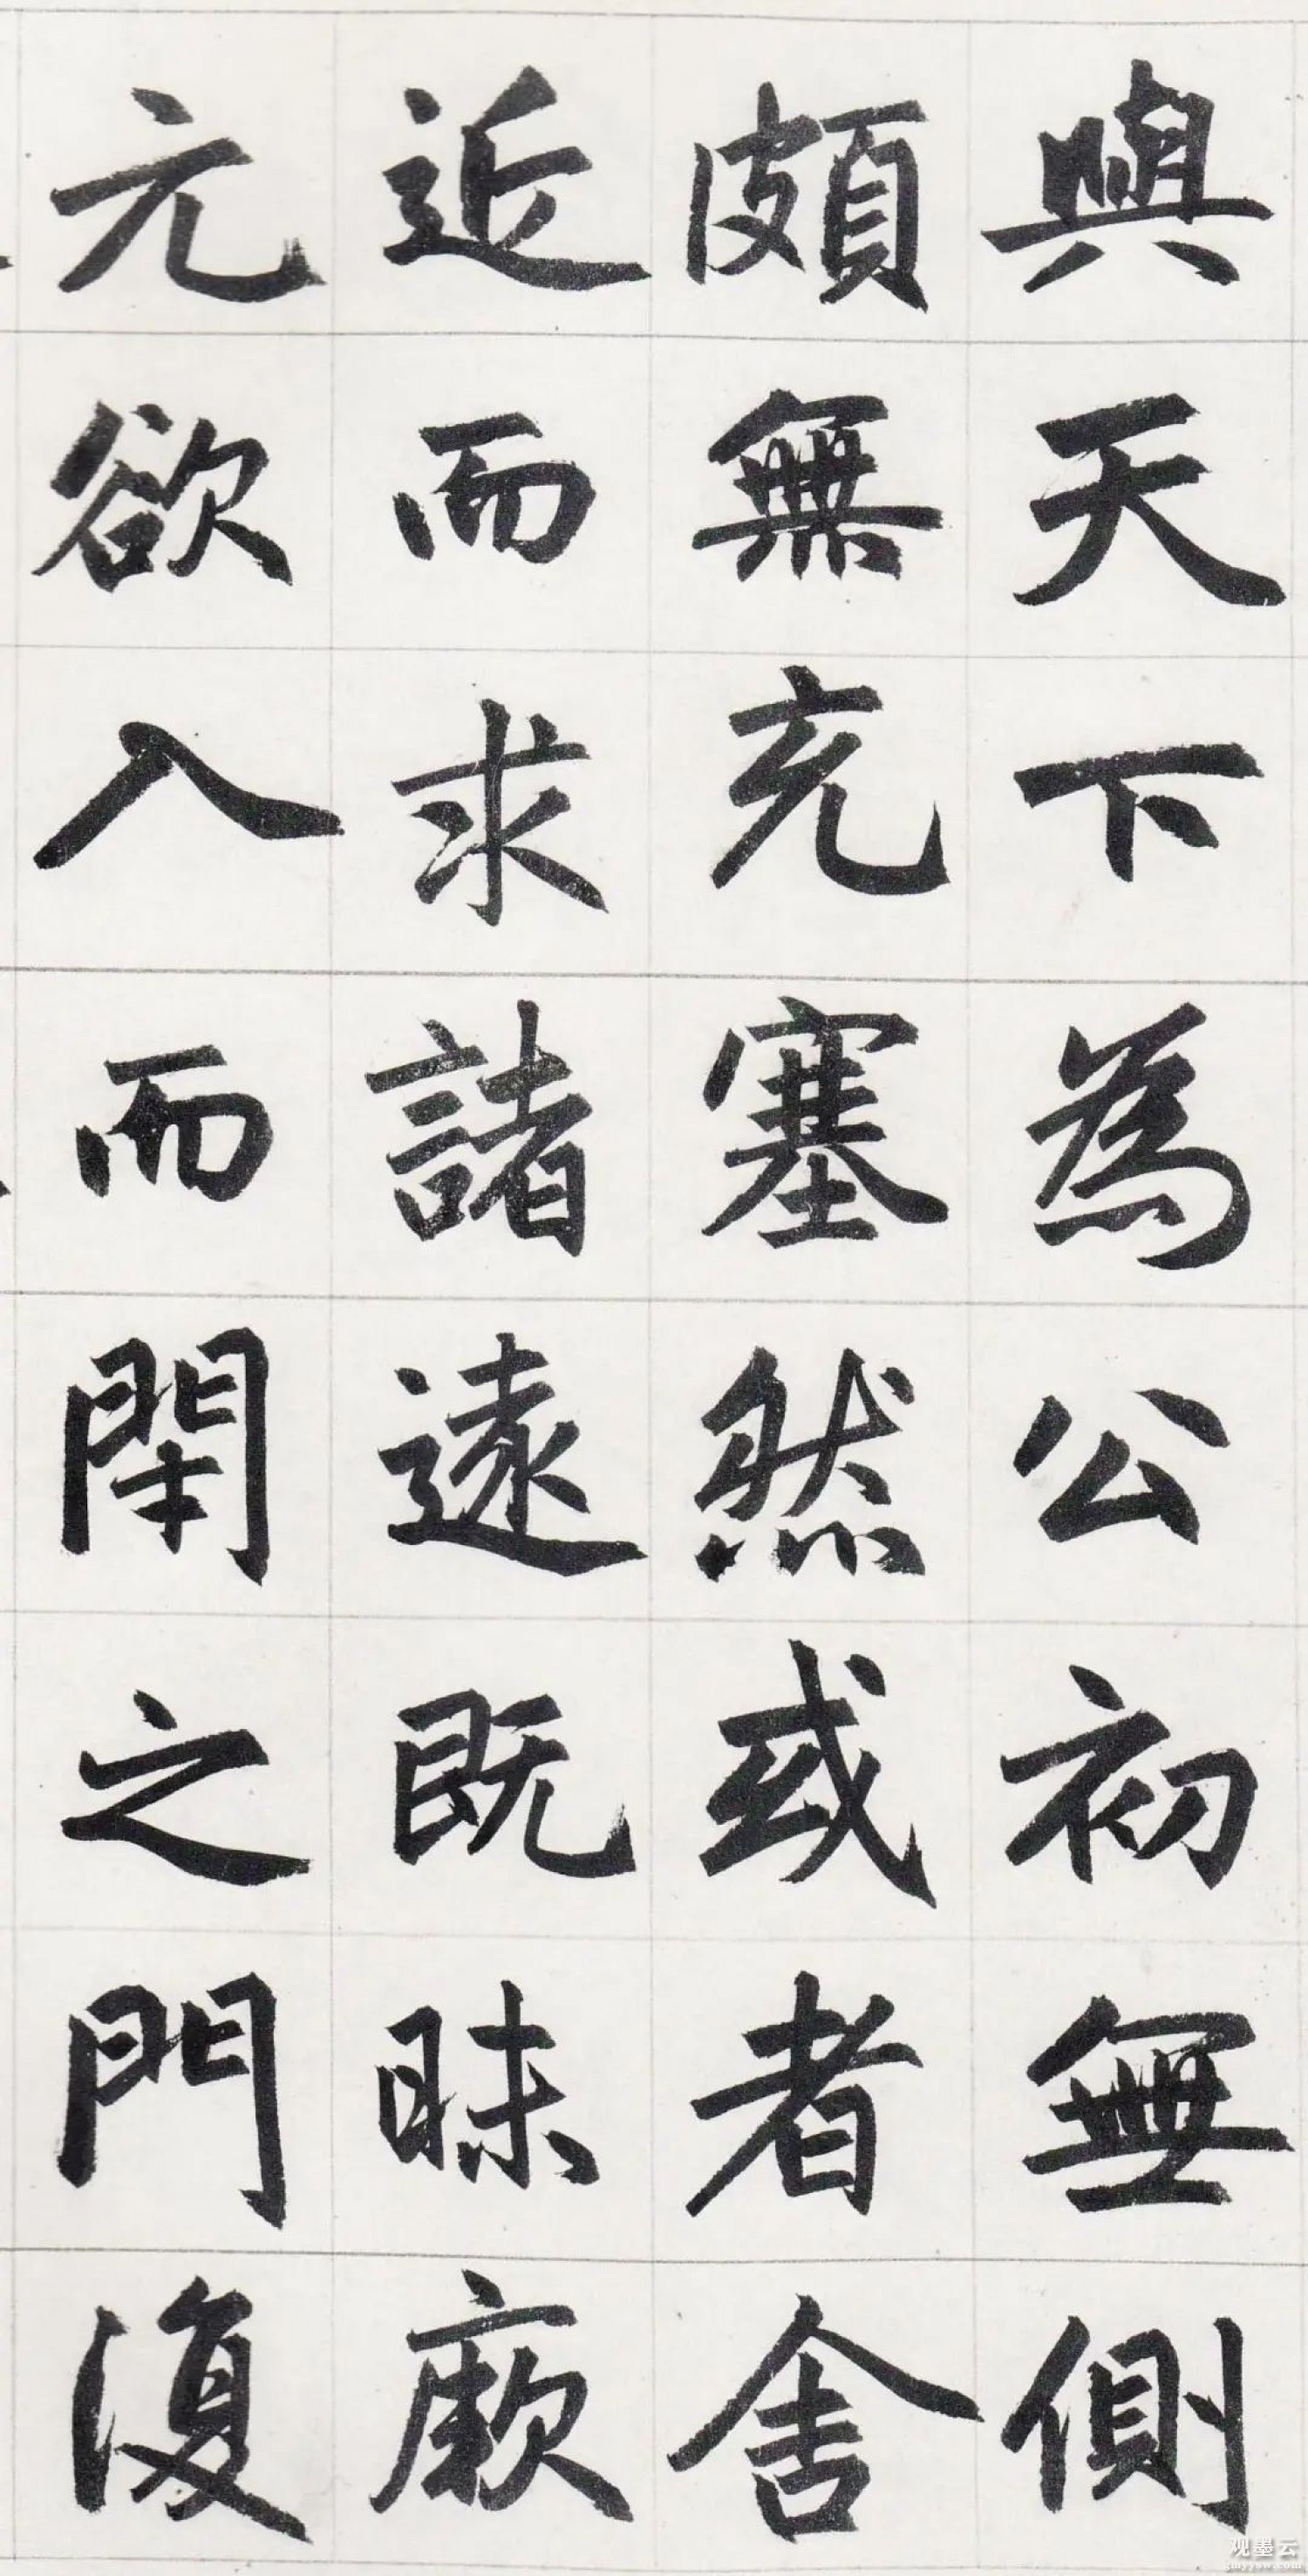 與天下為公初無側
頗無充塞然或者舍
近而求諸遠既昧厥
元欲入而閈之門復
观墨云
gmyysw.com